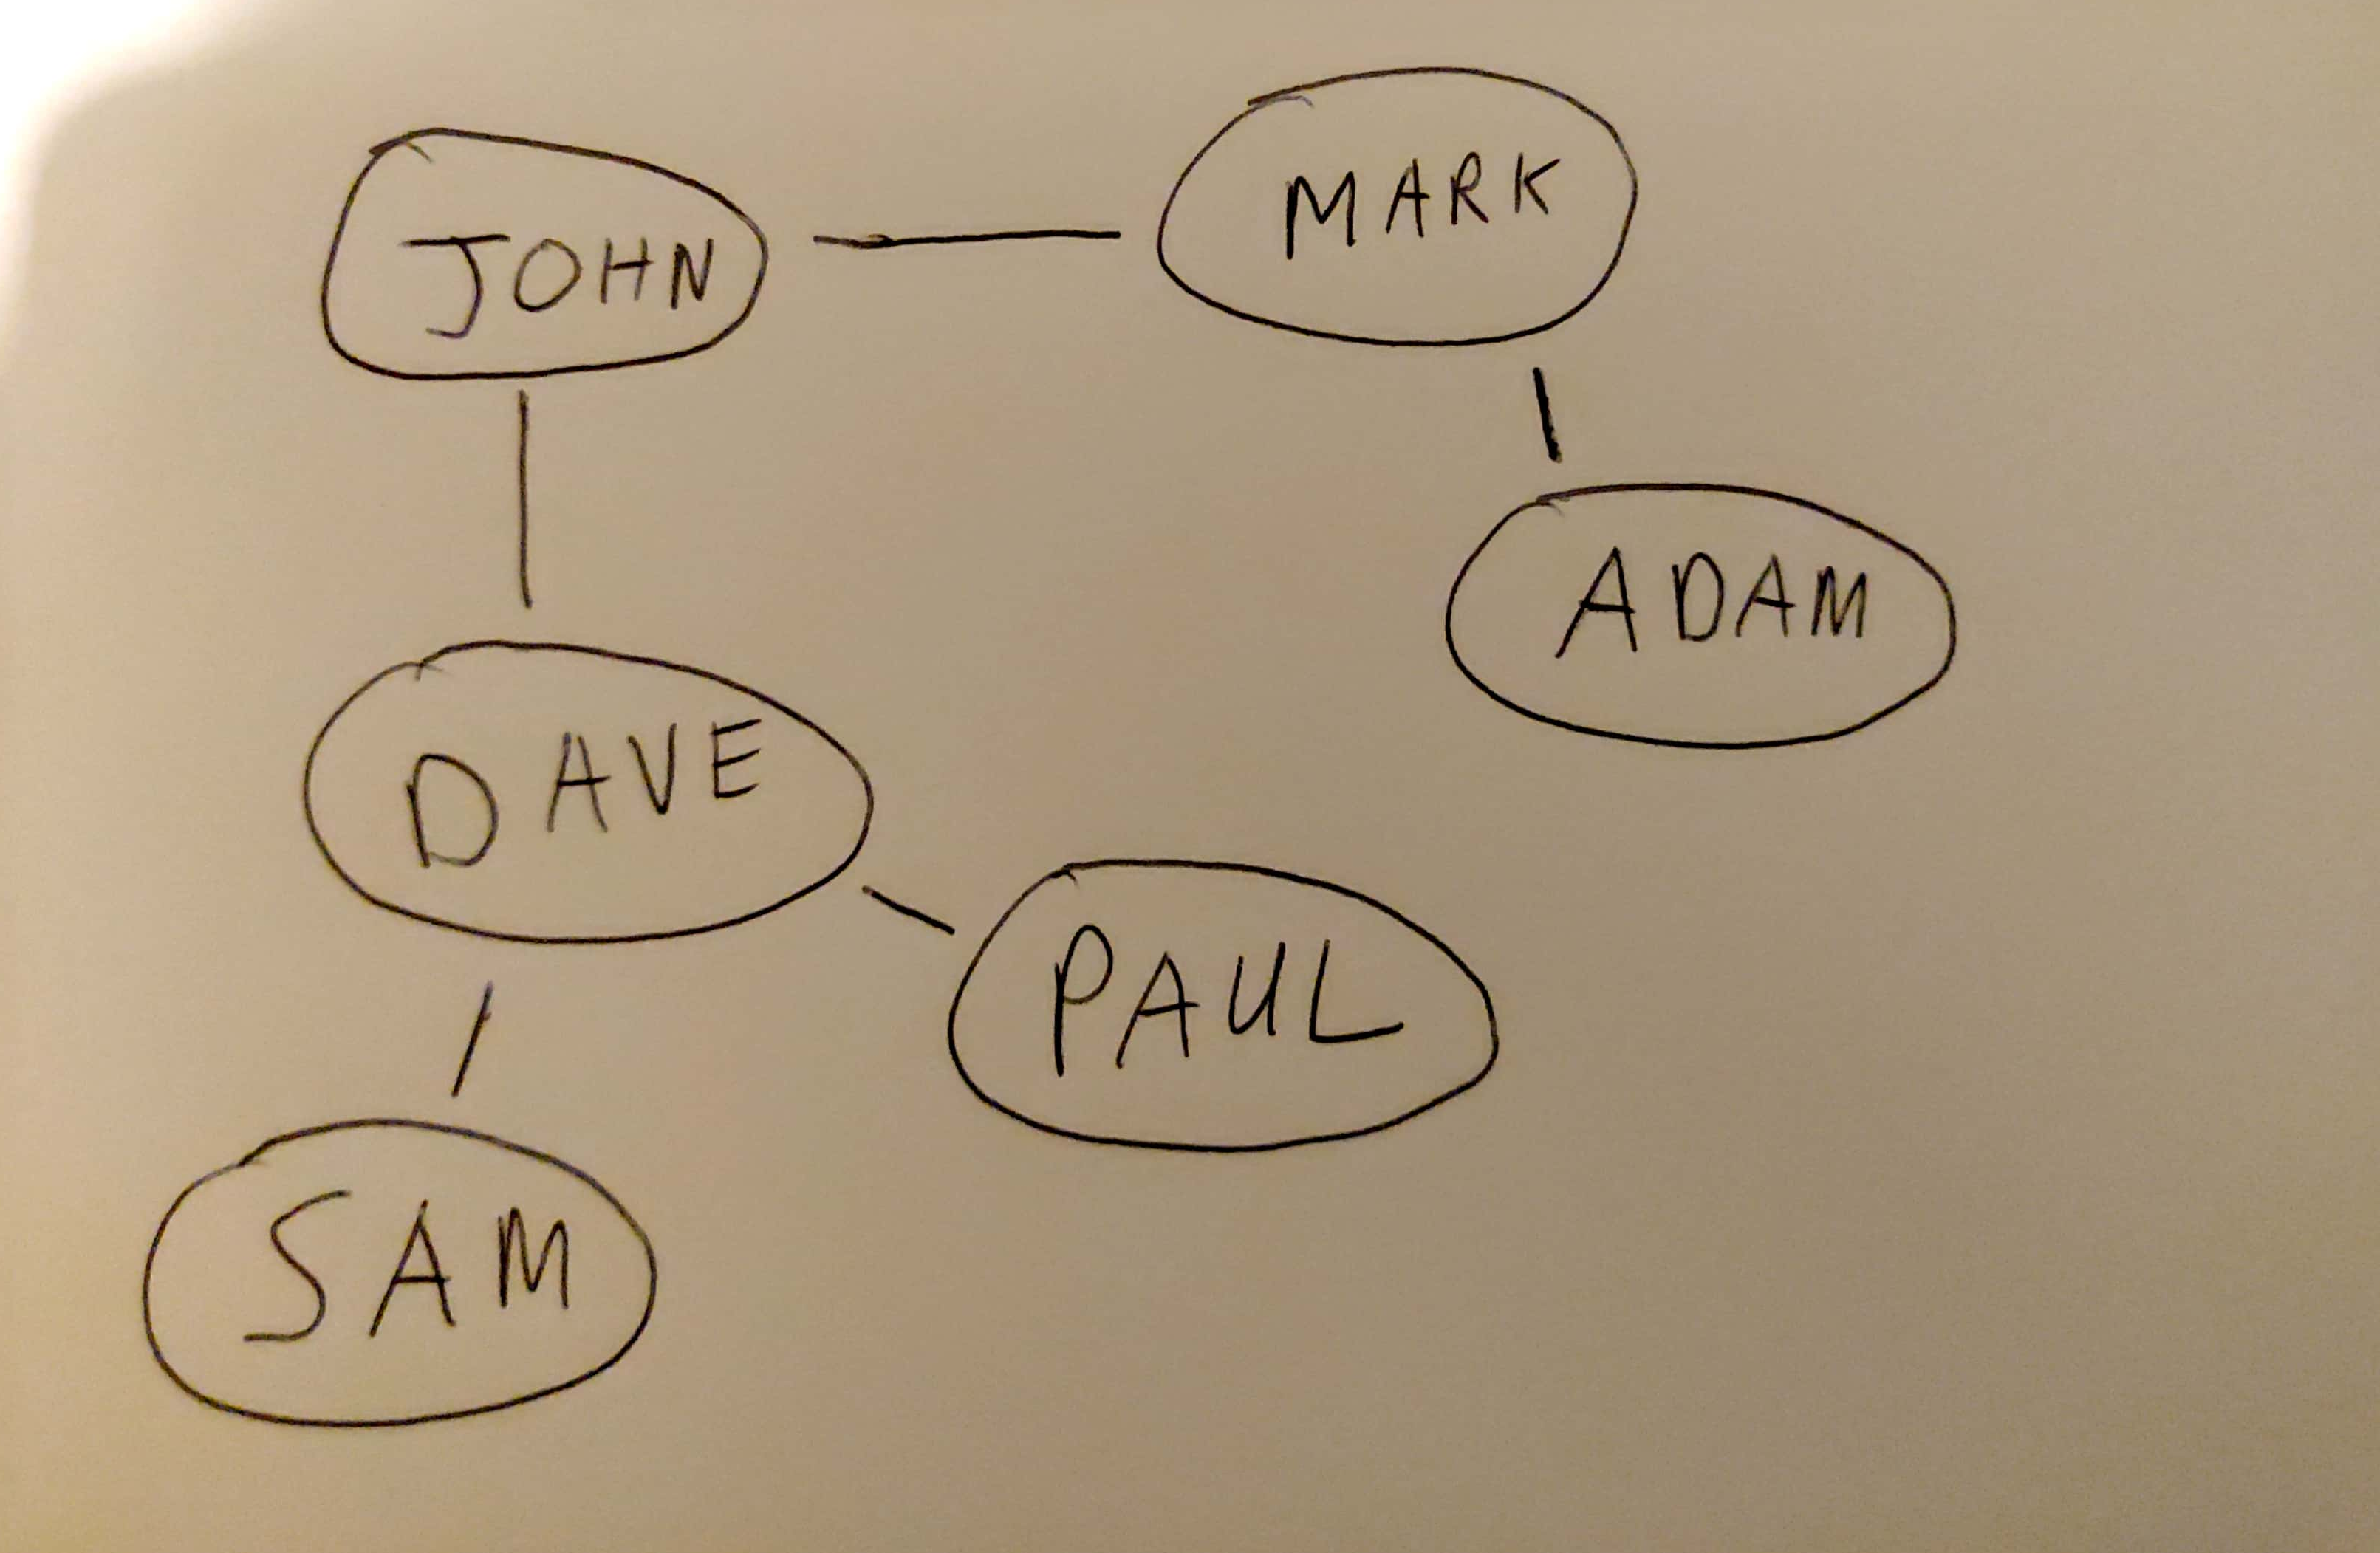 JOHN
MARK
ADAM
DAVE
PAUL
SAM